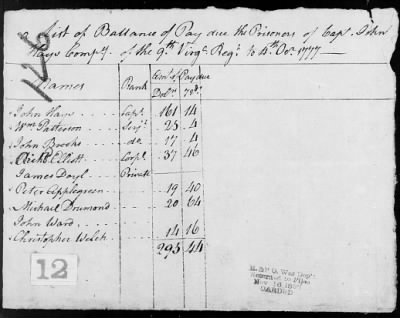 a List of Ballance of Pay due the Prisoners of Capt. John
Hays Compy. of the 9th Virga. Regt. to 4th Oct. 1777
126
Names Rank Amt. of Pay due
Dolrs. 72ds.
John Hays Capt. 161 14
Wm Patterson Serjt. 25 4
John Brooks do 17 4
Richd. Elliott Corpl. 37 46
James Doyl Private
Peter Applegreen 19 40
Michael Drumond 20 64
John Ward
Christopher Welch 14 16
295 44
12
R. & P. O. War Dept.
Returned to Files
CARDED